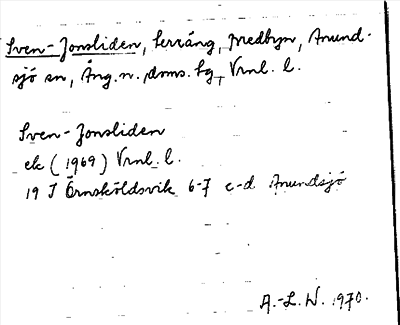 Sven-Jonsliden, terräng, Bredbyn, Anund-
sjö sn, Ång. n., doms. bg, Vrnl. l.
Sven-Jonsliden
ek (1969) Vrnl. l.
19 J Örnsköldsvik 6-7 c-d Anundsjö
A.-L. W. 1970.